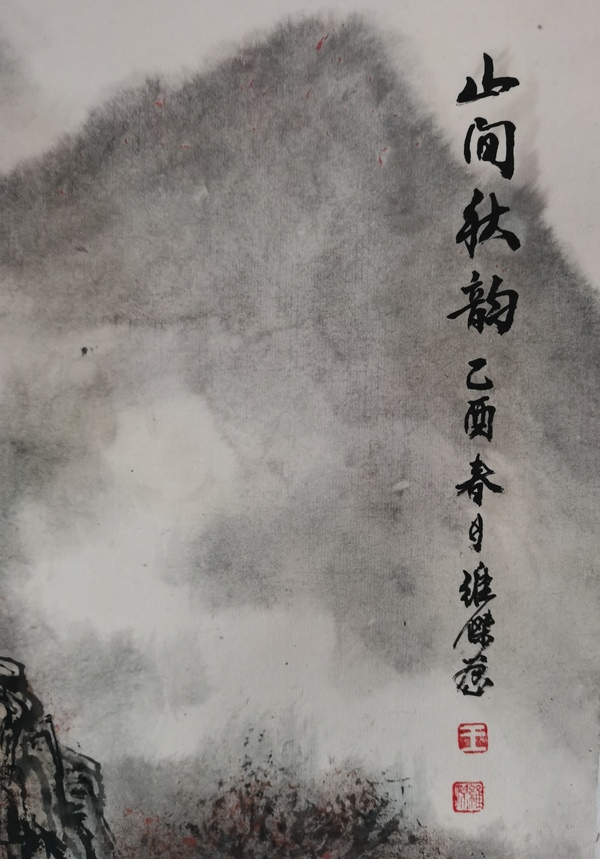 山间秋韵 乙酉春月维杰
王